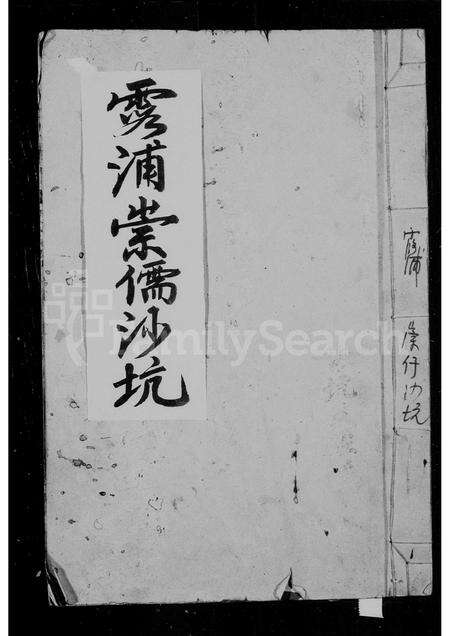 霞浦崇儒沙坑
霞浦 崇仔沙坑
FamilySearch